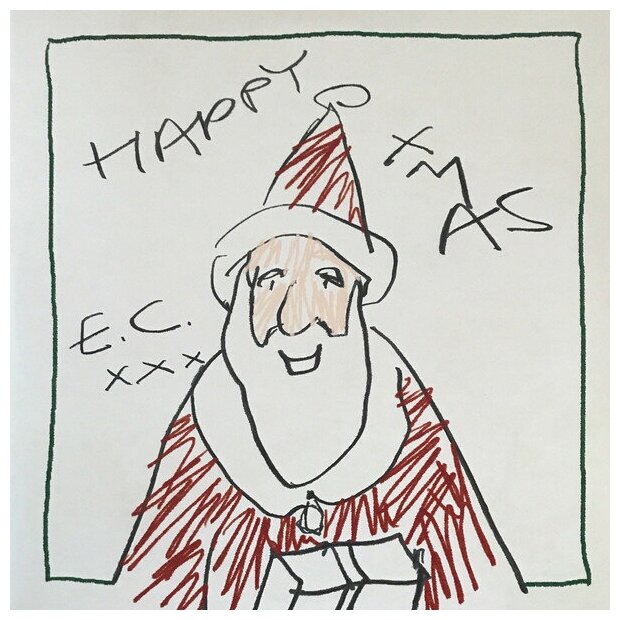 HAPPY
XMAS
E.C.
xxx